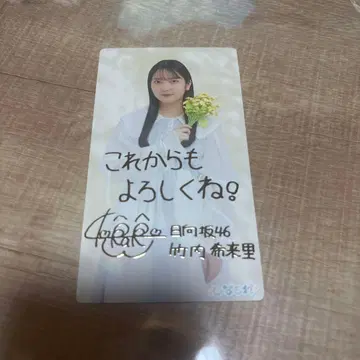 これからも
よろしくね!
日向坂46
竹内 希来里
ひなこい